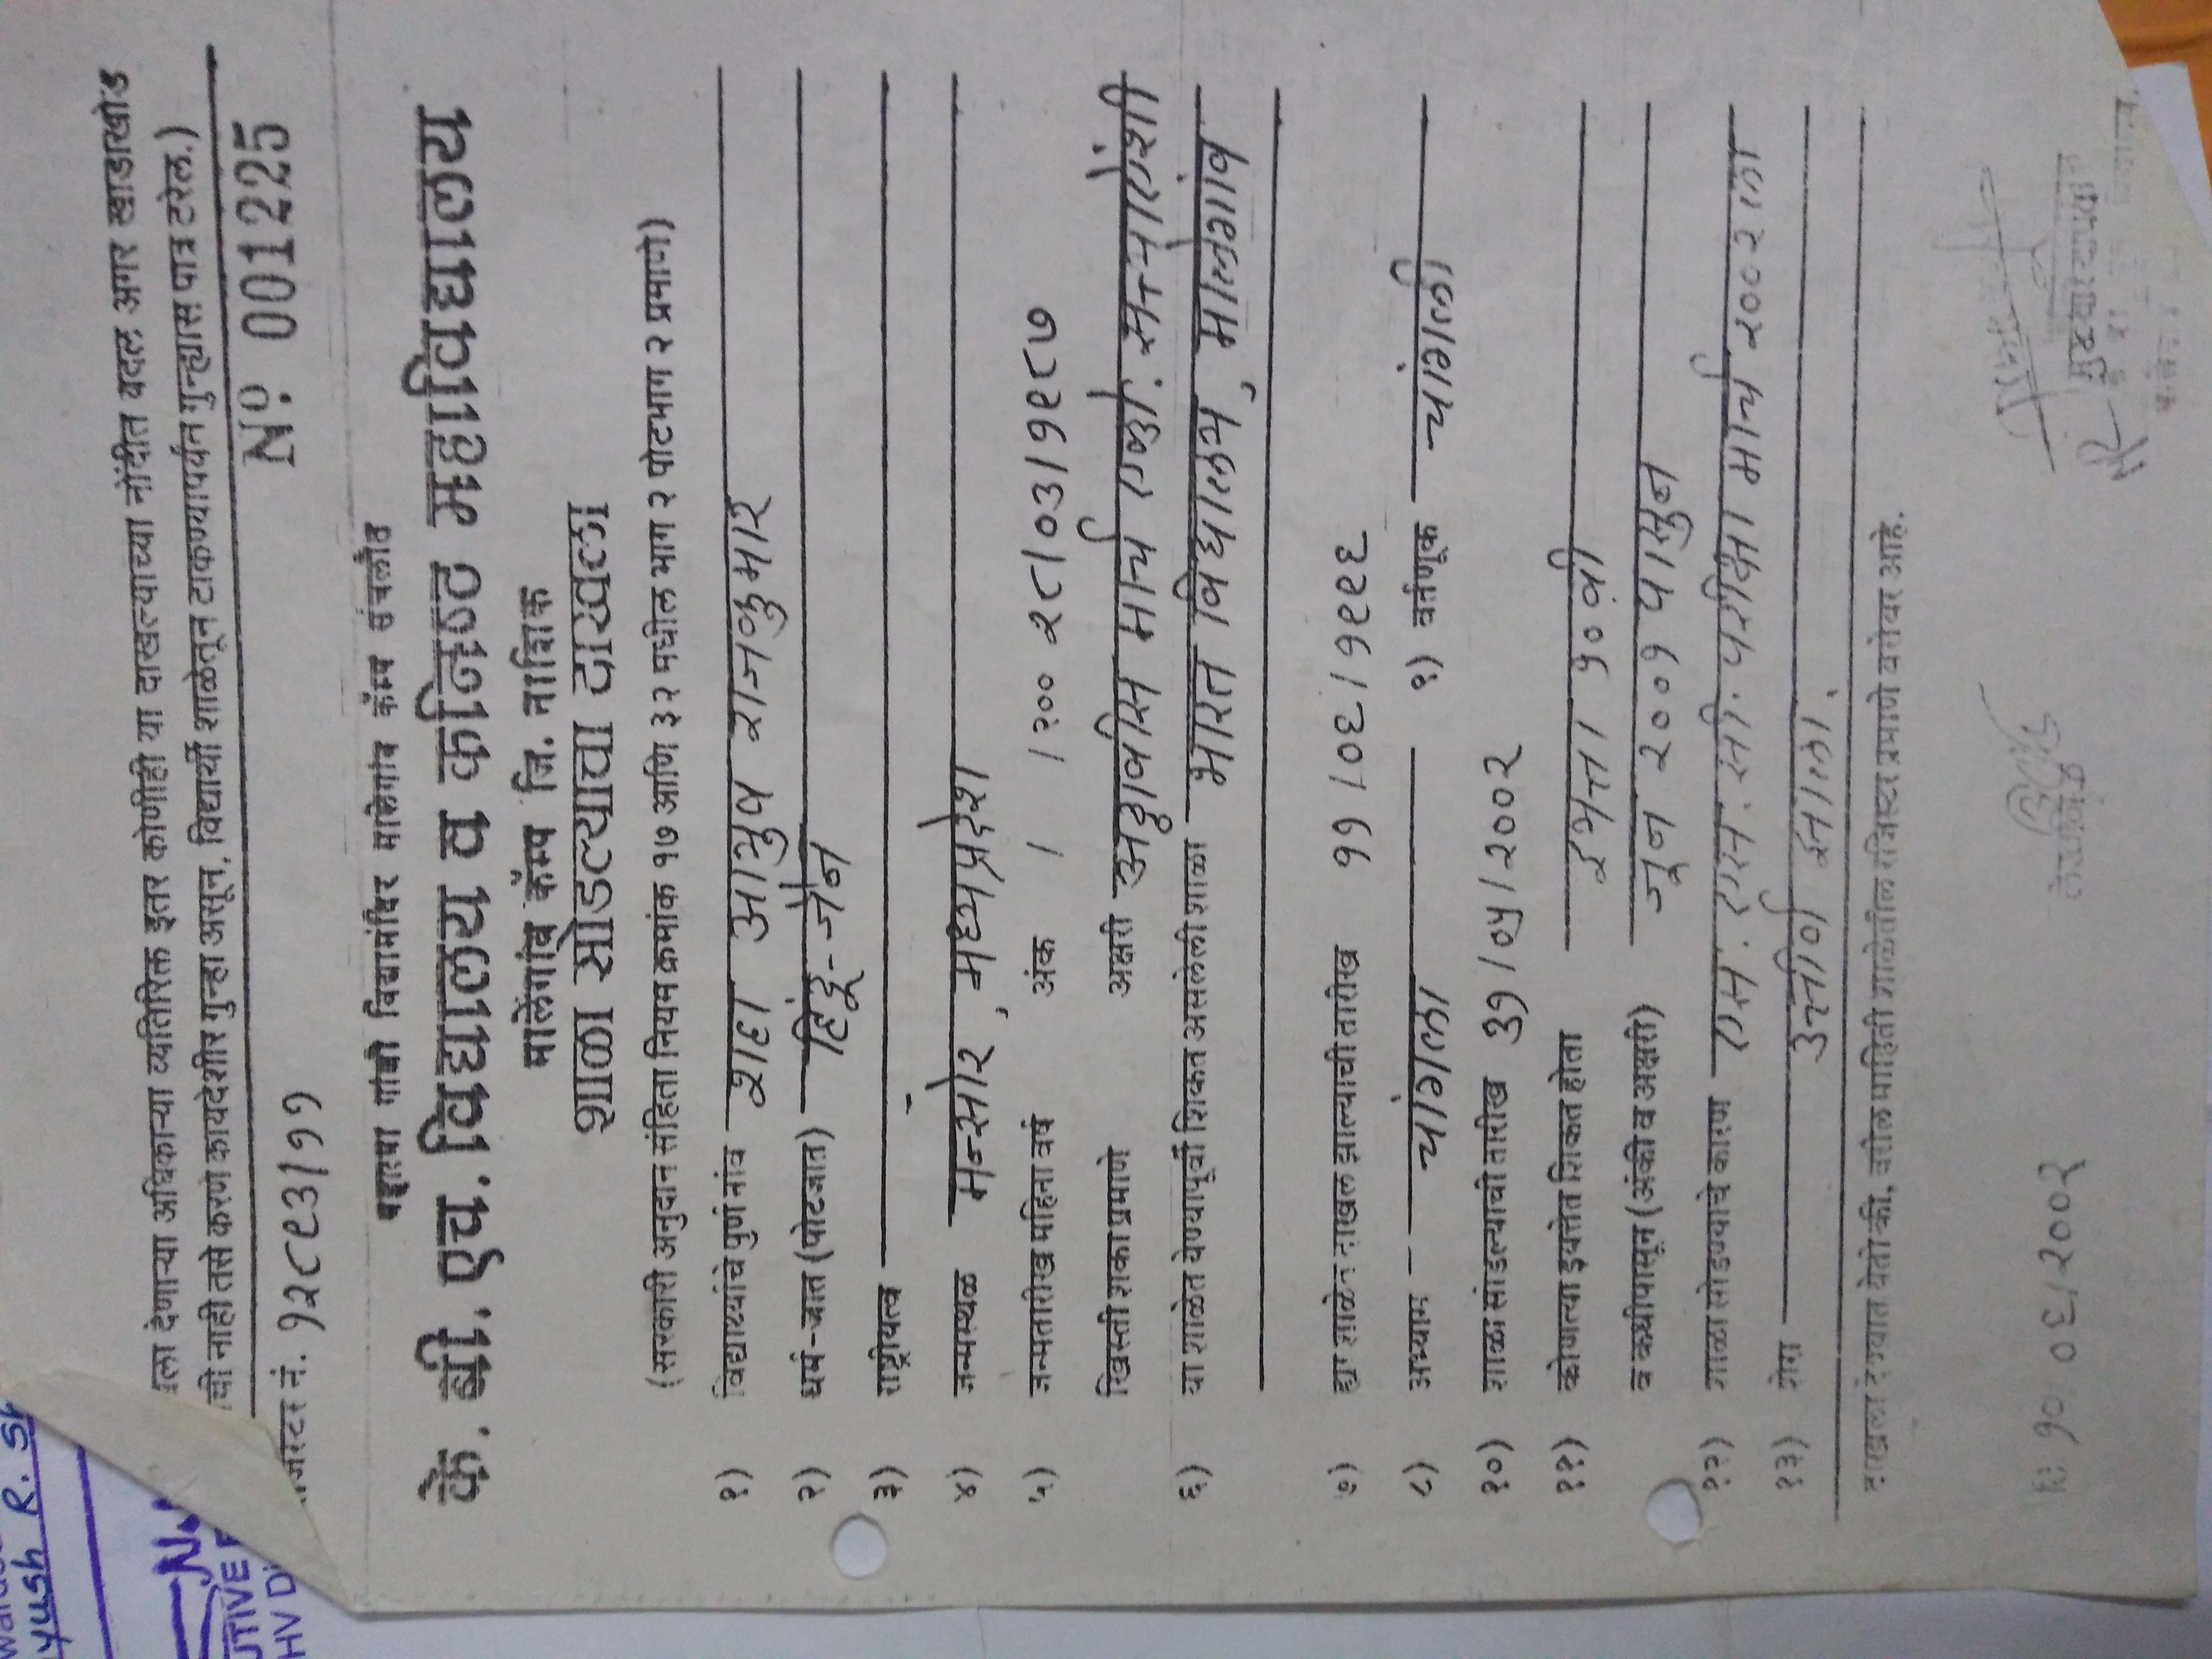 ला देणाऱ्या अधिकाऱ्या व्यतिरिक्त इतर कोणीही या दाखल्याच्या नोंदीत बदल अगर खाडाखोड
ची नाही तसे करणे कायदेशीर गुन्हा असून, विद्यार्थी शाळेतून टाकण्यापर्यंत गुन्ह्यास पात्र ठरेल.)
जिस्टर नं. १२८९३/११
Nº 001225
महात्मा गांधी विद्यामंदिर मालेगांव कॅम्प संचलीत
के. बी. एच. विद्यालय व कनिष्ठ महाविद्यालय
मालेगांव कॅम्प जि. नाशिक
शाळा सोडल्याचा दाखला
(सरकारी अनुदान संहिता नियम क्रमांक १७ आणि ३२ मधील भाग २ पोटभाग २ प्रमाणे)
१) विद्यार्थ्याचे पुर्ण नांव शहा आयुष राजकुमार
२) धर्म-जात (पोटजात) हिंदू-जैन
३) राष्ट्रीयत्व -
४) जन्मस्थळ मन्सोर, मध्यप्रदेश
५) जन्मतारीख महिना वर्ष अंक / /२०० २८/०३/१९८७
ख्रिस्ती शका प्रमाणे अक्षरी अठ्ठावीस मार्च एको. सत्त्याऐंशी
६) या शाळेत येण्यापूर्वी शिकत असलेली शाळा भारत विद्यालय, मालेगांव
७) ह्या शाळेत दाखल झाल्याची तारीख ११/०६/१९९६
८) अभ्यास - चांगला ९) वर्तणूक चांगली
१०) शाळा सोडल्याची तारीख ३१/०५/२००२
११) कोणत्या इयत्तेत शिकत होता इयत्ता १० वी
व कधीपासून (अंकी व अक्षरी) जून २००१ पासून
१२) शाळा सोडण्याचे कारण एस. एस. सी. परीक्षा मार्च २००२ ला
१३) शेरा उत्तीर्ण झाला.
दाखला देण्यात येतो की, वरील माहिती शाळेतील रजिस्टर प्रमाणे बरोबर आहे.
दि. १०. ०६/२००२
लेखनिक
मुख्याध्यापक
yush R.